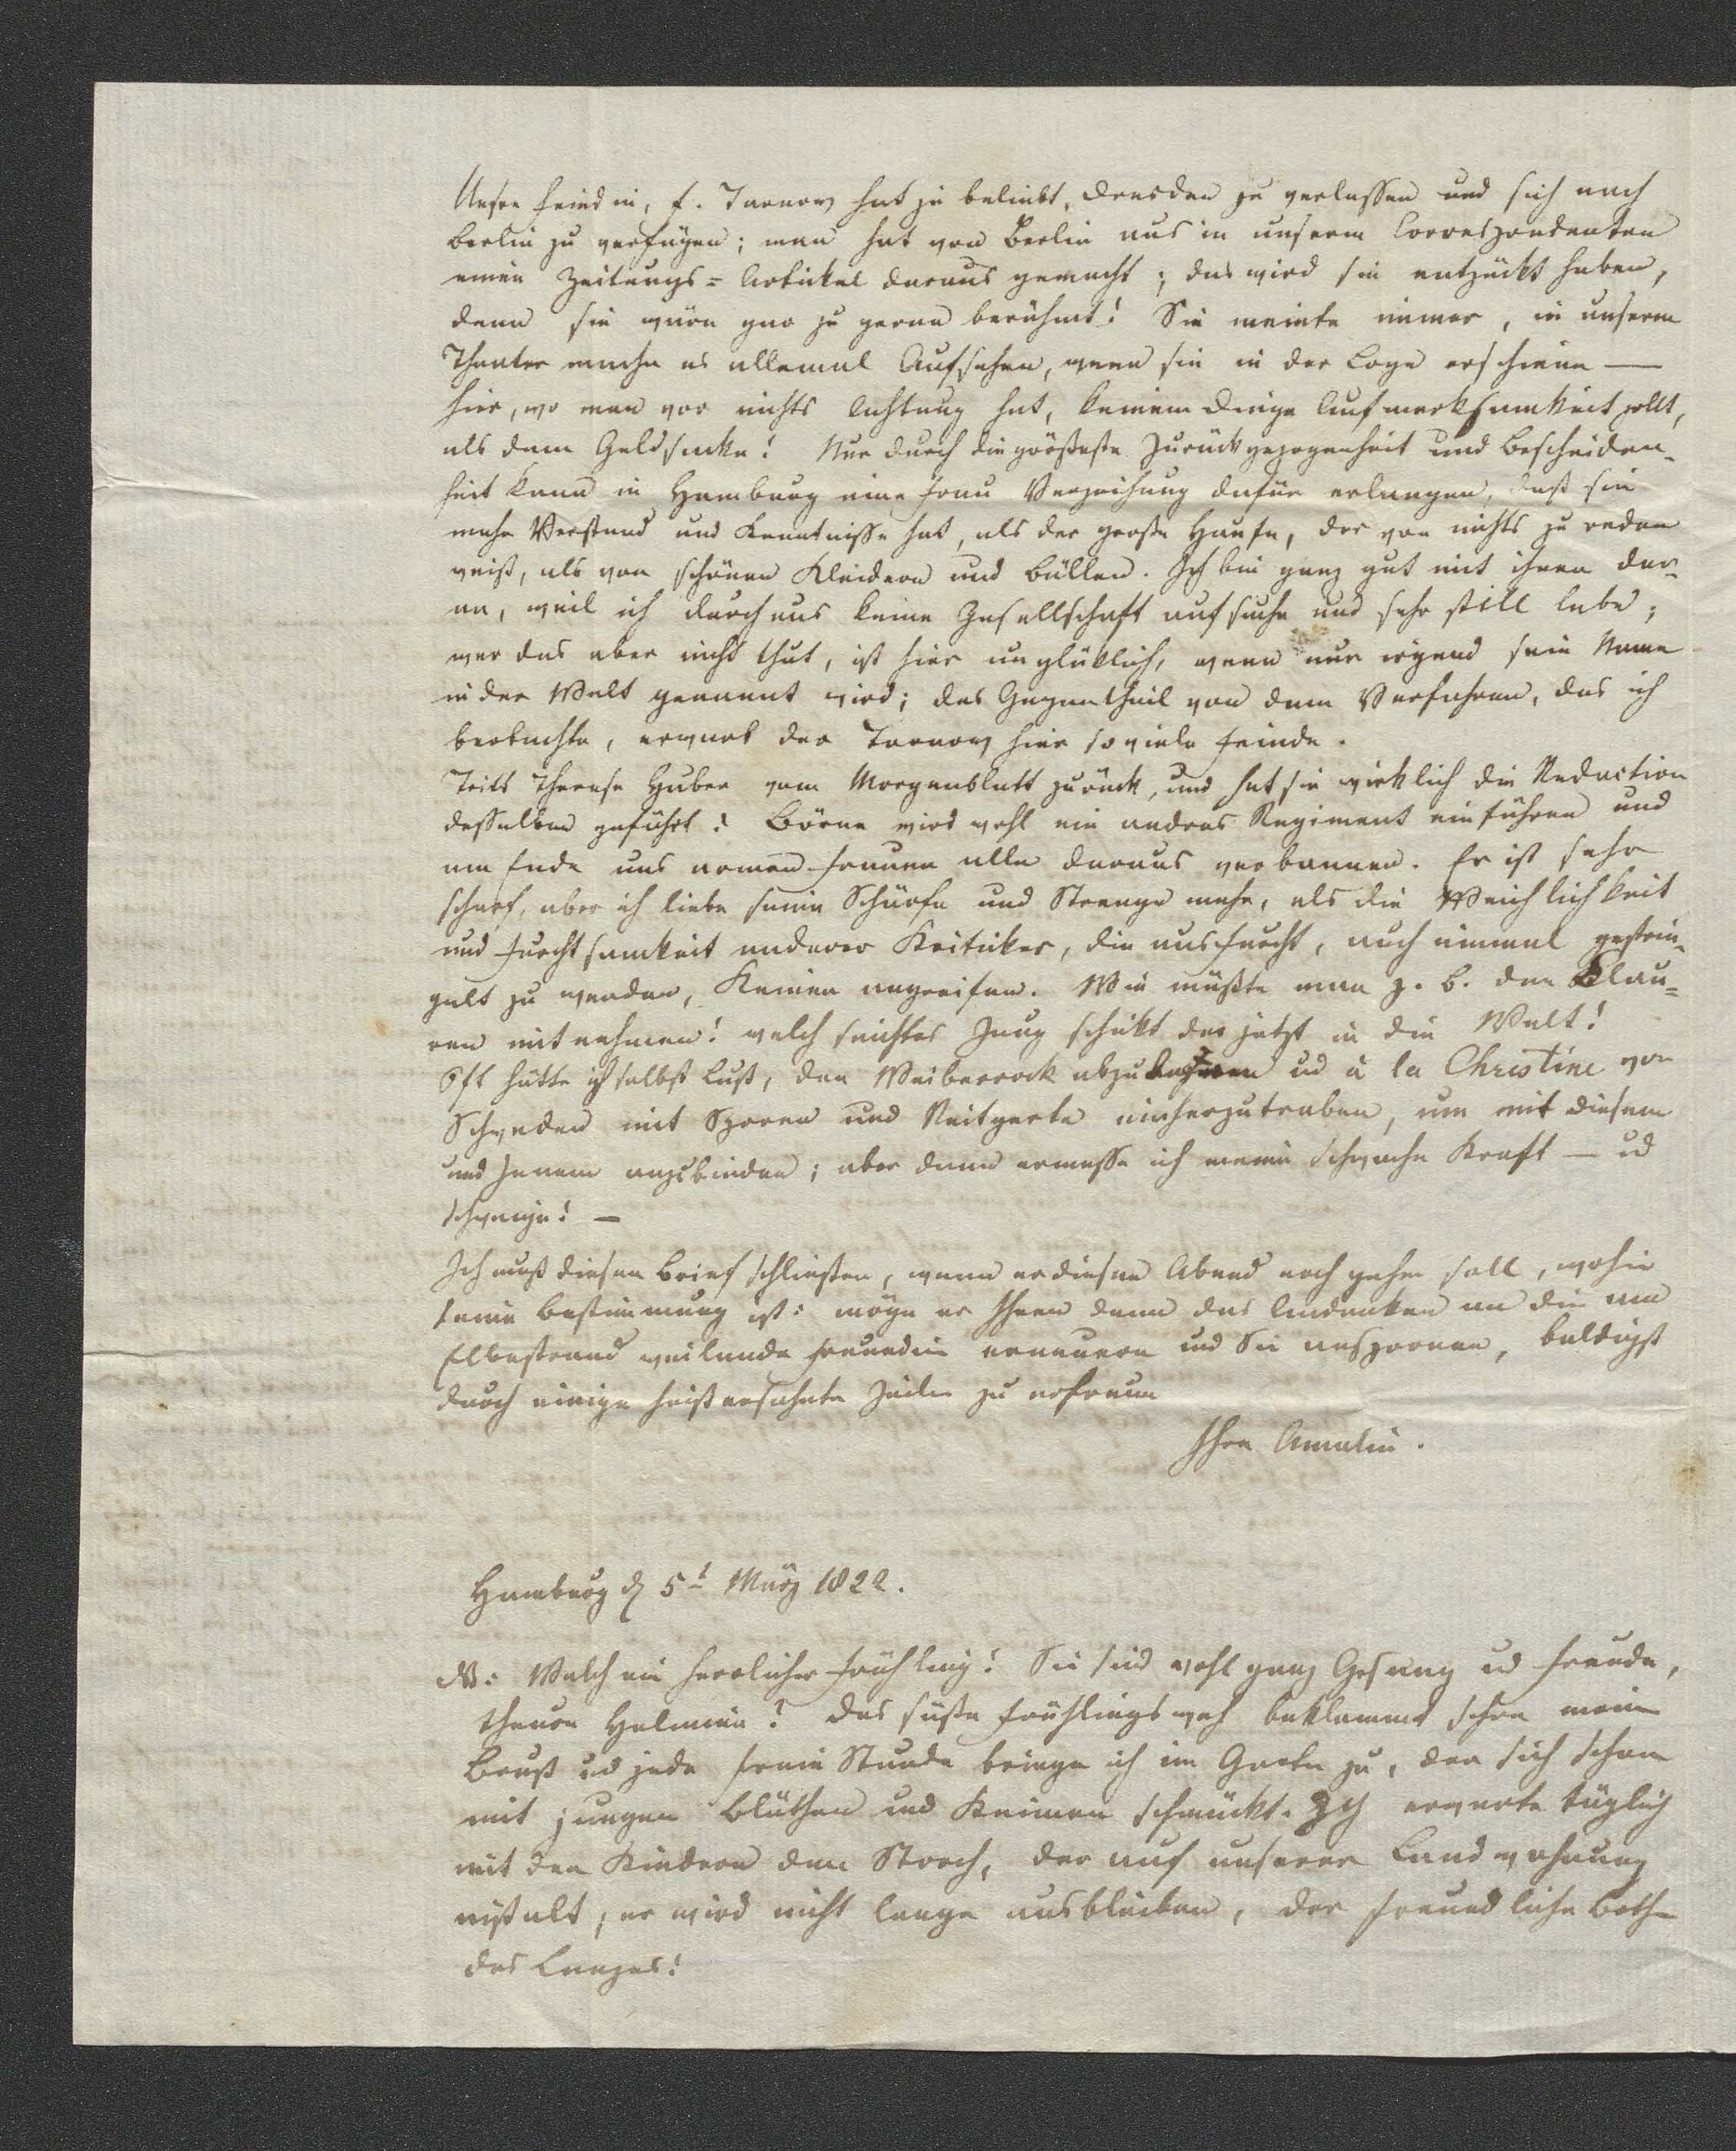 Unsre Feindin, F. Tarnow hat ja beliebt, Dresden zu verlassen und sich nach
Berlin zu verfügen; man hat von Berlin aus in unserm Correspondenten
einen Zeitungs=Artickel daraus gemacht; das wird sie entzückt haben,
denn sie wäre gar zu gerne berühmt! Sie meinte immer, in unserm
Theater mache es allemal Aufsehen, wenn sie in der Loge erscheine —
hier, wo man vor nichts Achtung hat, keinem Dinge Aufmerksamkeit zollt,
als dem Geldsacke! Nur durch die größeste Zurückgezogenheit und Bescheiden-
heit kann in Hamburg eine Frau Verzeihung dafür erlangen, daß sie
mehr Verstand und Kenntnisse hat, als der große Haufe, der von nichts zu reden
weiß, als von schönen Kleidern und Bällen. Ich bin ganz gut mit ihnen dar-
an, weil ich durchaus keine Gesellschaft aufsuche und sehr still lebe;
wer das aber nicht thut, ist hier unglüklich, wenn nur irgend sein Name
in der Welt genannt wird; das Gegentheil von dem Verfahren, das ich
beobachte, erwarb der Tarnow hier so viele Feinde.
Tritt Therese Huber vom Morgenblatt zurück, und hat sie wirklich die Redaction
desselben geführt? Börne wird wohl ein andres Regiment einführen und
am Ende uns armen Frauen alle daraus verbannen. Er ist sehr
scharf, aber ich liebe seine Schärfe und Strenge mehr, als die Weichlichkeit
und Furchtsamkeit anderer Kriticker, die aus Furcht, auch einmal gestrie-
gelt zu werden, Keinen angreifen. Wie müßte man z. B. den Clau=
ren mitnehmen! welch seichtes Zeug schickt der jetzt in die Welt!
Oft hätte ich selbst Lust, den Weiberrock abzulegen ud à la Christine von
Schweden mit Sporen und Reitgerte einherzutraben, um mit diesem
und Jenem anzubinden; aber dann ermesse ich meine schwache Kraft — ud
schweige! —
Ich muß diesen Brief schließen, wenn er diesen Abend noch gehen soll, wohin
seine Bestimmung ist: möge er Ihnen denn das Andenken an die am
Elbestrand weilende Freundin erneuern und Sie anspornen, baldigst
durch einige heißersehnte Zeilen zu erfreun
Ihre Amalie.
Hamburg d 5t März 1822.
NB: Welch ein herrlicher Frühling! Sie sind wohl ganz Gesang ud Freude,
theure Helmina? Das süße Frühlingsweh beklemmt schon meine
Brust ud jede freie Stunde bringe ich im Garten zu, der sich schon
mit jungen Blüthen und Keimen schmückt. Ich erwarte täglich
mit den Kindern den Storch, der auf unserer Landwohnung
nistelt, er wird nicht lange ausbleiben, der freundliche Bothe
des Lenzes!